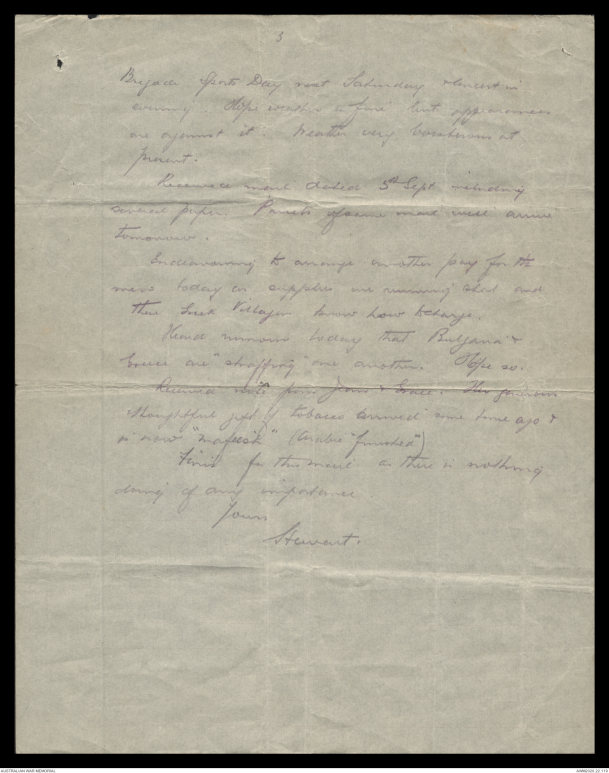 3
Brigade Sports Day next Saturday & concert in
evening. Hope weather is fine but appearances
are against it. Weather very boisterous at
present.
Received mail dated 5th Sept including
several papers. Parcels of same mail will arrive
tomorrow.
Endeavouring to arrange another pay for the
mess today as supplies are running short and
these Greek Villages know how to charge.
Heard rumours today that Bulgaria &
Greece are "straffing" one another. Hope so.
Received note from Jean & Grace. Her
thoughtful gift of tobacco arrived some time ago &
is now "mafeesh" (Arabic "finished")
Finis for this mail as there is nothing
doing of any importance
Yours
Stewart.
AUSTRALIAN WAR MEMORIAL